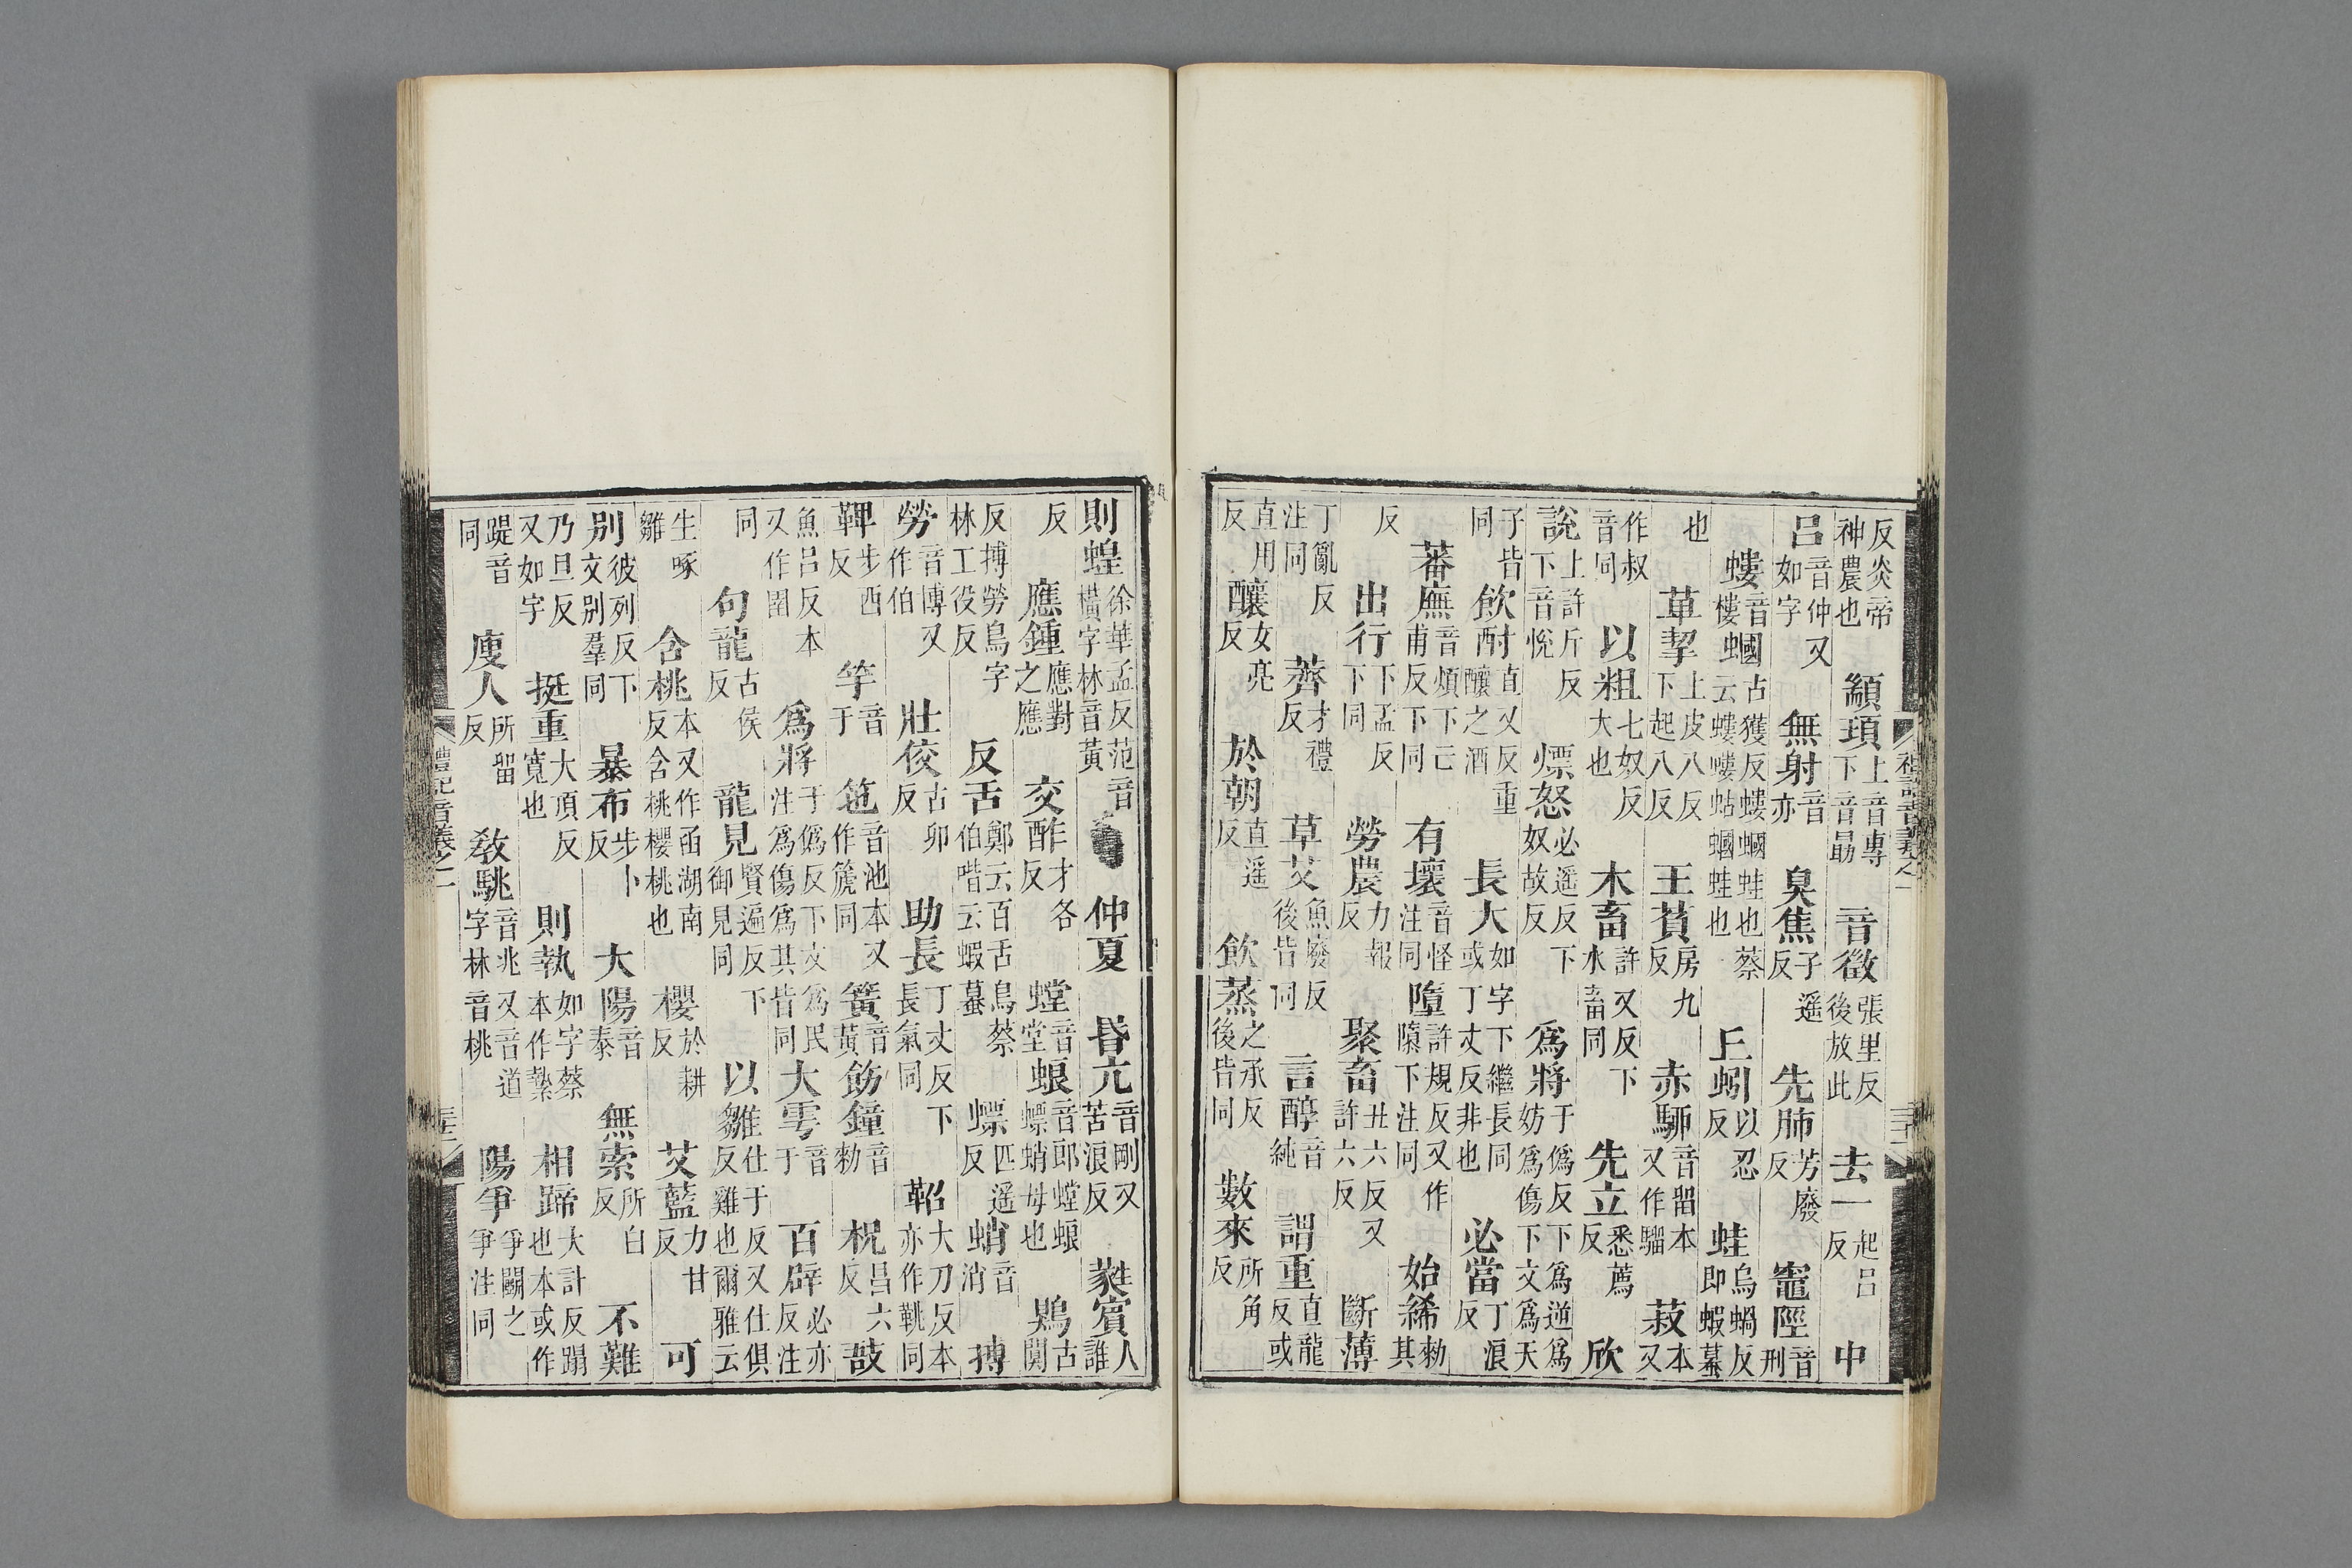 反炎帝神農也　顓頊上音專下音勗　音徵張里反後放此　去一起呂反　中
呂音仲又如字　無射音亦　臭焦子遥反　先肺芳廢反　竈陘音刑
螻音樓蟈古獲反螻蟈蛙也蔡云螻螻蛄蟈蛙也　丘蚓以忍反　蛙烏蝸反即蝦蟇
也　萆挈上皮八反下起八反　王萯房九反　赤駵音畱本又作騮　菽本又
作叔音同　以粗七奴反大也　木畜許又反下水畜同　先立悉薦反　欣
說上許斤反下音悅　慓怒必遥反下奴故反　爲將于僞反下爲逆爲妨爲傷下文爲天
子皆同　飲酎直又反重釀之酒　長大如字下繼長同或丁丈反非也　必當丁浪反
蕃廡音煩下亡甫反下同　有壞音怪注同　墮許規反又作隳下注同　始絺勑其
反　出行下孟反下同　勞農力報反　聚畜丑六反又許六反　斷薄
丁亂反注同　薺才禮反　草艾魚廢反後皆同　言醇音純　謂重直龍反或
直用反　釀女亮反　於朝直遥反　飲蒸之承反後皆同　數來所角反
則蝗徐華孟反范音橫字林音黃　仲夏　昏亢音剛又苦浪反　蕤賓人誰
反　應鍾應對之應　交酢才各反　螳音堂蜋音郎螳蜋螵蛸母也　鶪古闃
反搏勞鳥字林工役反　反舌鄭云百舌鳥蔡伯喈云蝦蟇　螵匹遥反　蛸音消　搏
勞音博又作伯　壯佼古卯反　助長丁丈反下長氣同　鞀大刀反本亦作鞉同
鞞步西反　竽音于　笹音池本又作箎同　簧音黃　飭鐘音勑　柷昌六反　敔
魚呂反本又作圉　爲將于僞反下文爲民注爲傷爲其皆同　大雩音于　百辟必亦反注
同　句龍古侯反　龍見賢遍反下御見同　以雛仕于反又仕俱反雞也爾雅云
生啄雛　含桃本又作函湖南反含桃櫻桃也　櫻於耕反　艾藍力甘反　可
别彼列反下文别羣同　暴布步卜反　大陽音泰　無索所白反　不難
乃旦反又如字　挺重大頂反寬也　則執如字蔡本作縶　相蹄大計反蹋也本或作
踶音同　廋人所畱反　教駣音兆又音道字林音桃　陽爭爭鬭之爭注同
禮記音義之一